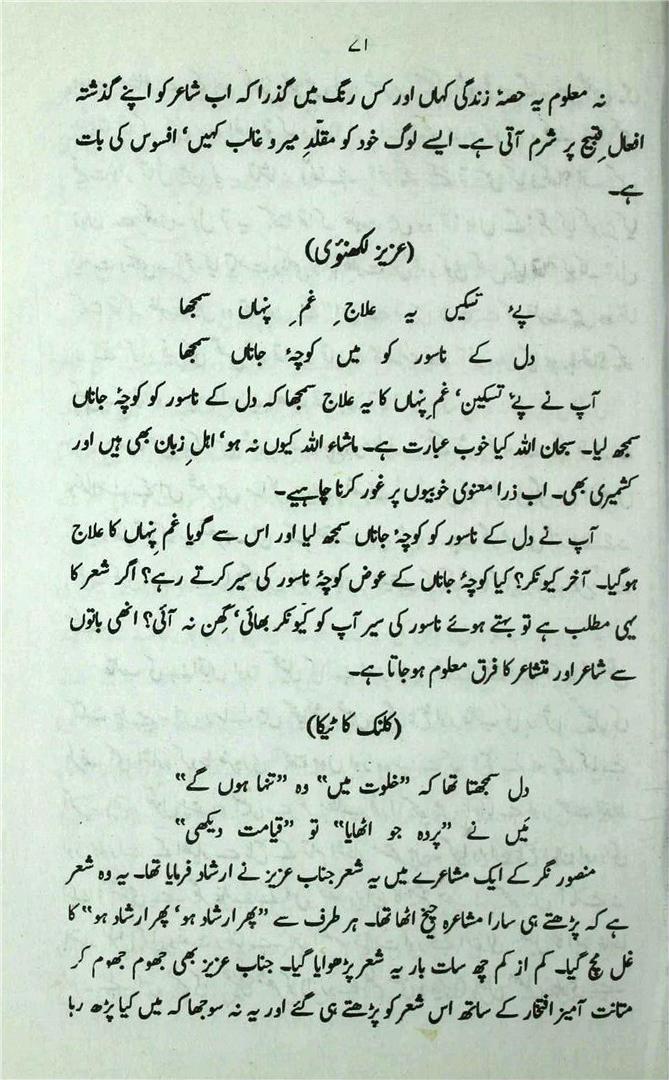 ۷۱
نہ معلوم یہ حصۂ زندگی کہاں اور کس رنگ میں گذرا کہ اب شاعر کو اپنے گذشتہ
افعالِ قبیح پر شرم آتی ہے۔ ایسے لوگ خود کو مقلّدِ میر و غالب کہیں، افسوس کی بات
ہے۔
(عزیز لکھنؤی)
پئے تسکیں یہ علاجِ غمِ پنہاں سمجھا
دل کے ناسور کو میں کوچۂ جاناں سمجھا
آپ نے پئے تسکین، غمِ پنہاں کا یہ علاج سمجھا کہ دل کے ناسور کو کوچۂ جاناں
سمجھ لیا۔ سبحان اللہ کیا خوب عبارت ہے۔ ماشاء اللہ کیوں نہ ہو، اہلِ زبان بھی ہیں اور
کشمیری بھی۔ اب ذرا معنوی خوبیوں پر غور کرنا چاہیے۔
آپ نے دل کے ناسور کو کوچۂ جاناں سمجھ لیا اور اس سے گویا غمِ پنہاں کا علاج
ہوگیا۔ آخر کیونکر؟ کیا کوچۂ جاناں کے عوض کوچۂ ناسور کی سیر کرتے رہے؟ اگر شعر کا
یہی مطلب ہے تو بہتے ہوئے ناسور کی سیر آپ کو کیونکر بھائی، گھن نہ آئی؟ انھی باتوں
سے شاعر اور متشاعر کا فرق معلوم ہوجاتا ہے۔
(کلنک کا ٹیکا)
دل سمجھتا تھا کہ ”خلوت میں“ وہ ”تنہا ہوں گے“
مَیں نے ”پردہ جو اٹھایا“ تو ”قیامت دیکھی“
منصور نگر کے ایک مشاعرے میں یہ شعر جناب عزیز نے ارشاد فرمایا تھا۔ یہ وہ شعر
ہے کہ پڑھتے ہی سارا مشاعرہ چیخ اٹھا تھا۔ ہر طرف سے ”پھر ارشاد ہو، پھر ارشاد ہو“ کا
غل مچ گیا۔ کم از کم چھ سات بار یہ شعر پڑھوایا گیا۔ جناب عزیز بھی جھوم جھوم کر
متانت آمیز افتخار کے ساتھ اس شعر کو پڑھتے ہی گئے اور یہ نہ سوجھا کہ میں کیا پڑھ رہا